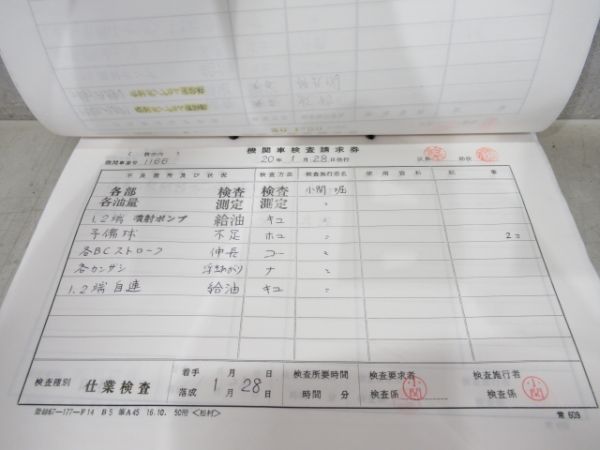 機関車検査請求券
機関車番号 1166
20年 1月 28日発行
不良箇所及び状況 検査方法 検査施行者名 使用資料 記事
各部 検査 検査 小関 堀
各油量 測定 測定 〃
1.2端 噴射ポンプ 給油 キユ 〃
予備球 不足 ホユ 〃 2コ
各BCストローク 伸長 コー 〃
各カンザシ ナ 〃
1.2端 自連 給油 キユ 〃
検査種別 仕業検査 着手 月 日 落成 1月 28日 検査所要時間 時間 分 検査要求者 検査係 小関 検査施行者 検査係 小関
登録67-177-F14 B5 単A45 16.10. 50冊 <松村> 営 609